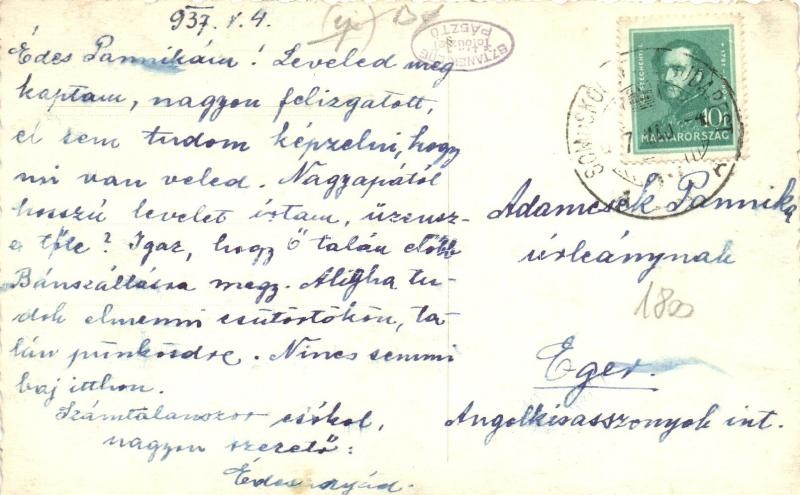 937. V. 4.
Édes Pannikám! Leveled meg
kaptam, nagyon felizgatott,
el sem tudom képzelni, hogy
mi van veled. Nagyapától
hosszú levelet írtam, üzensz-
e tőle? Igaz, hogy ő talán előbb
Bánszállásra megy. Aligha tu-
dok elmenni csütörtökön, ta-
lán pünkösdre. Nincs semmi
baj itthon.
Számtalanszor csókol,
nagyon szerető:
Édesanyád.
SZTANEK EDE
PÁSZTÓ
SZÉCHENYI
10f
MAGYARORSZÁG
Adamcsek Pannika
úrleánynak
1800
Eger.
Angolkisasszonyok int.